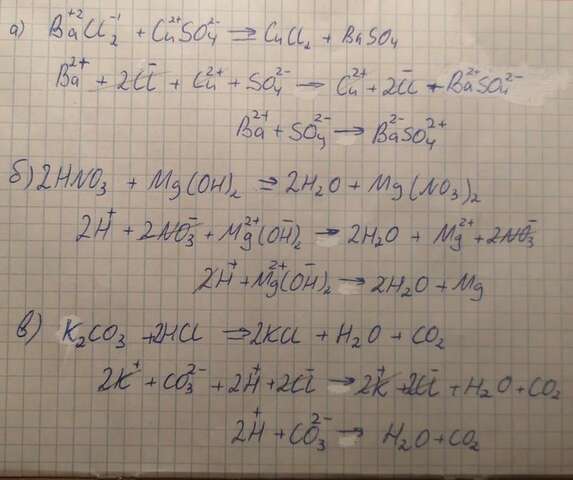 а) Ba⁺²Cl₂⁻¹ + Cu²⁺SO₄²⁻ = CuCl₂ + BaSO₄
Ba²⁺ + 2Cl⁻ + Cu²⁺ + SO₄²⁻ → Cu²⁺ + 2Cl⁻ + Ba²⁺SO₄²⁻
Ba²⁺ + SO₄²⁻ → Ba²⁻SO₄²⁺
б) 2HNO₃ + Mg(OH)₂ = 2H₂O + Mg(NO₃)₂
2H⁺ + 2NO₃⁻ + Mg²⁺(OH⁻)₂ → 2H₂O + Mg²⁺ + 2NO₃⁻
2H⁺ + Mg²⁺(OH⁻)₂ → 2H₂O + Mg
в) K₂CO₃ + 2HCl ⇒ 2KCl + H₂O + CO₂
2K⁺ + CO₃²⁻ + 2H⁺ + 2Cl⁻ → 2K⁺ + 2Cl⁻ + H₂O + CO₂
2H⁺ + CO₃²⁻ → H₂O + CO₂